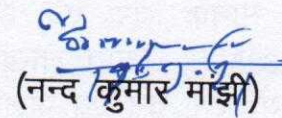 (नन्द कुमार मांझी)